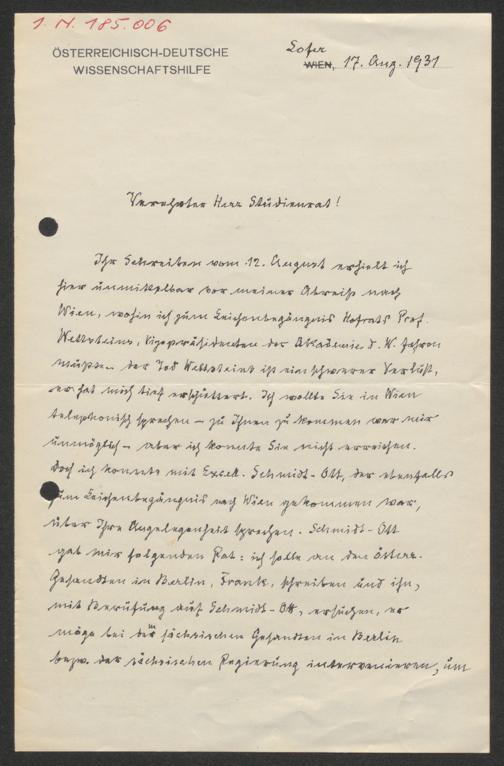 I. N. 185.006
ÖSTERREICHISCH-DEUTSCHE
WISSENSCHAFTSHILFE
Lofer
WIEN, 17. Aug. 1931
Verehrter Herr Studienrat!
Ihr Schreiben vom 12. August erhielt ich
hier unmittelbar vor meiner Abreise nach
Wien, wohin ich zum Leichenbegängnis Hofrats Prof.
Wettsteins, Vizepräsidenten der Akademie d. W. fahren
mußte. Der Tod Wettsteins ist ein schwerer Verlust,
er hat mich tief erschüttert. Ich wollte Sie in Wien
telephonisch sprechen – zu Ihnen zu kommen war mir
unmöglich – aber ich konnte Sie nicht erreichen.
Doch ich konnte mit Excell. Schmidt-Ott, der ebenfalls
zum Leichenbegängnis nach Wien gekommen war,
über Ihre Angelegenheit sprechen. Schmidt-Ott
gab mir folgenden Rat: ich solle an den österr.
Gesandten in Berlin, Frank, schreiben und ihn,
mit Berufung auf Schmidt-Ott, ersuchen, er
möge bei der sächsischen Gesandten in Berlin
bezw. der sächsischen Regierung intervenieren, um